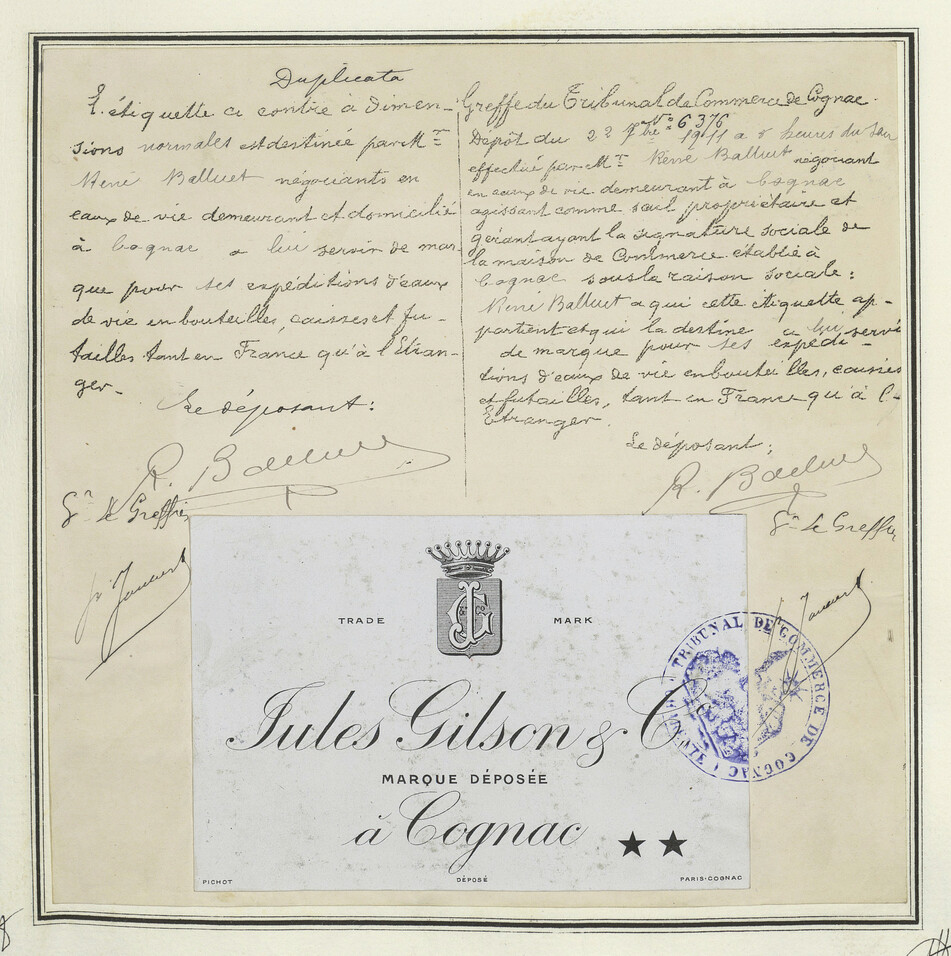 Duplicata
L'étiquette ci contre à dimen-
sions normales est destinée par Mr
René Balluet négociants en
eaux de vie demeurant et domicilié
à Cognac a lui servir de mar
que pour ses expéditions d'eaux
de vie en bouteilles, caisses et fu-
tailles tant en France qu'à l'Etran-
ger.
Le déposant:
R. Balluet
Gr Le Greffier
Greffe du Tribunal de Commerce de Cognac.
No 6376
Dépôt du 22 7bre 1911 a heures du soir
effectué par Mr René Balluet négociant
en eaux de vie demeurant à Cognac
agissant comme seul propriétaire et
gérant ayant la signature sociale de
la maison de Commerce établie à
Cognac sous la raison sociale:
René Balluet a qui cette étiquette ap-
partient et qui la destine a lui servi
de marque pour ses expédi-
tions d'eaux de vie en bouteilles, caisses
et futailles, tant en France qu'à l'-
Etranger.
Le déposant:
R. Balluet
Gr Le Greffier
TRADE MARK
JG & Co
Jules Gilson & Co
MARQUE DÉPOSÉE
à Cognac
PICHOT
DÉPOSÉ
PARIS-COGNAC
TRIBUNAL DE COMMERCE DE COGNAC